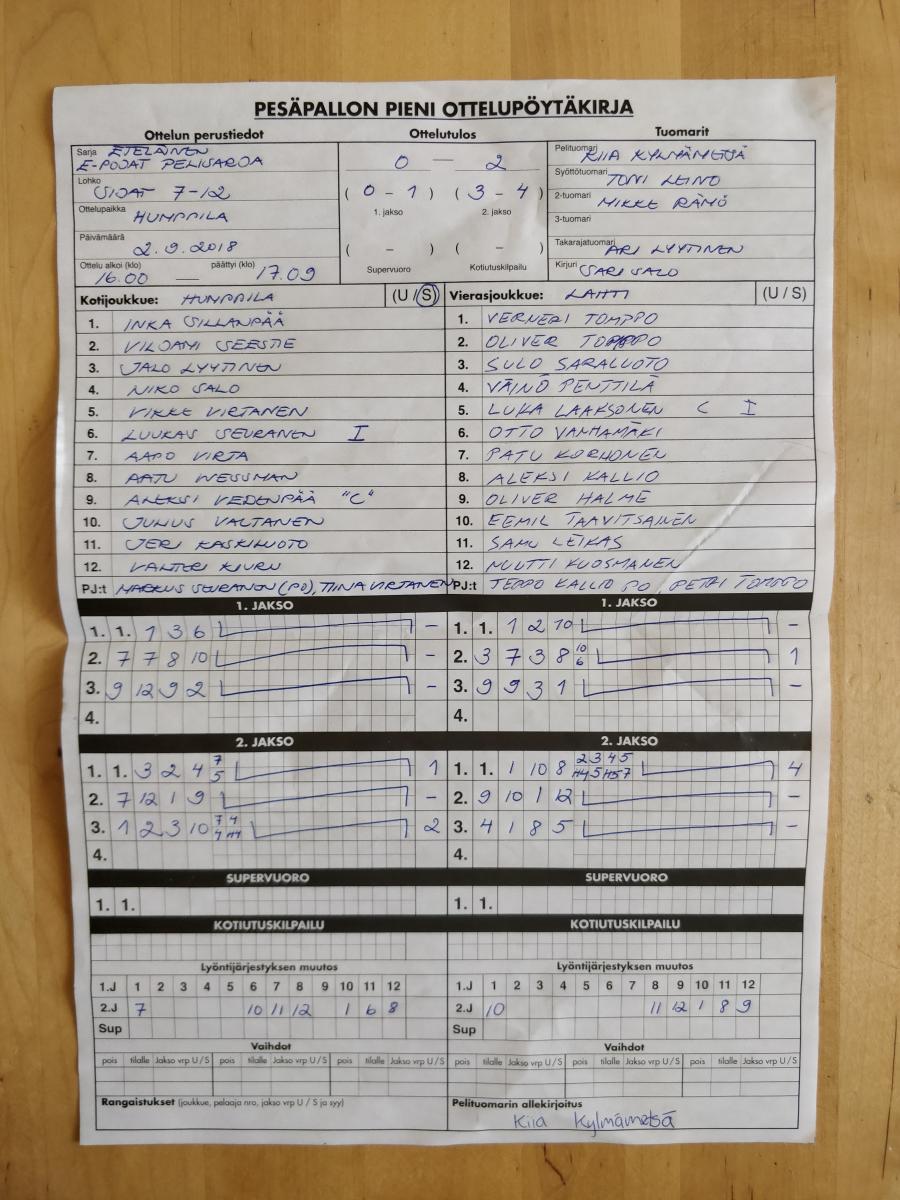 PESÄPALLON PIENI OTTELUPÖYTÄKIRJA
Ottelun perustiedot
Sarja ETELÄINEN
E-POJAT PELISARJA
Lohko
SIJAT 7-12
Ottelupaikka HUMPPILA
Päivämäärä
2.9.2018
Ottelu alkoi (klo) päättyi (klo)
16.00 — 17.09
Ottelutulos
0 — 2
( 0 - 1 ) ( 3 - 4 )
1. jakso 2. jakso
( - ) ( - )
Supervuoro Kotiutuskilpailu
Tuomarit
Pelituomari KIIA KYLMÄMETSÄ
Syöttötuomari TONI LEINO
2-tuomari MIKKE RÄMÖ
3-tuomari
Takarajatuomari ARI LYYTINEN
Kirjuri SARI SALO
Kotijoukkue: HUMPPILA (U / S)
1. INKA SILLANPÄÄ
2. VILJAMI SEESTE
3. JALO LYYTINEN
4. NIKO SALO
5. VIKKE VIRTANEN
6. LUUKAS SEURANEN I
7. AAPO VIRTA
8. AATU WESSMAN
9. ALEKSI VEDENPÄÄ "C"
10. JULIUS VALTANEN
11. JERI KASKILUOTO
12. VALTTERI KIURU
PJ:t MARKUS SEURANEN (PJ), TIINA VIRTANEN
Vierasjoukkue: LAHTI (U / S)
1. VERNERI TOMPPO
2. OLIVER TOMPPO
3. SULO SARALUOTO
4. VÄINÖ PENTTILÄ
5. LUKA LAAKSONEN C I
6. OTTO VANHAMÄKI
7. PATU KORHONEN
8. ALEKSI KALLIO
9. OLIVER HALME
10. EEMIL TAAVITSAINEN
11. SAMU LEIKAS
12. NUUTTI KUOSMANEN
PJ:t TEPPO KALLIO PJ, PETRI TOMPPO
1. JAKSO
1. 1. 1 3 6 –
2. 7 7 8 10 –
3. 9 12 9 2 –
4.
1. JAKSO
1. 1. 1 2 10 –
2. 3 7 3 8 10 6 1
3. 9 9 3 1 –
4.
2. JAKSO
1. 1. 3 2 4 7 5 1
2. 7 12 1 9 –
3. 1 2 3 10 7 4 2
4.
2. JAKSO
1. 1. 1 10 8 2 3 4 5 4
2. 9 10 1 12 –
3. 4 1 8 5 –
4.
SUPERVUORO
1. 1.
SUPERVUORO
1. 1.
KOTIUTUSKILPAILU
KOTIUTUSKILPAILU
Lyöntijärjestyksen muutos
1.J 1 2 3 4 5 6 7 8 9 10 11 12
2.J 7 10 11 12 1 6 8
Sup
Lyöntijärjestyksen muutos
1.J 1 2 3 4 5 6 7 8 9 10 11 12
2.J 10 11 12 1 8 9
Sup
Vaihdot
pois tilalle Jakso vrp U / S pois tilalle Jakso vrp U / S pois tilalle Jakso vrp U / S
Vaihdot
pois tilalle Jakso vrp U / S pois tilalle Jakso vrp U / S pois tilalle Jakso vrp U / S
Rangaistukset (joukkue, pelaaja nro, jakso vrp U / S ja syy)
Pelituomarin allekirjoitus
Kiia Kylmämetsä